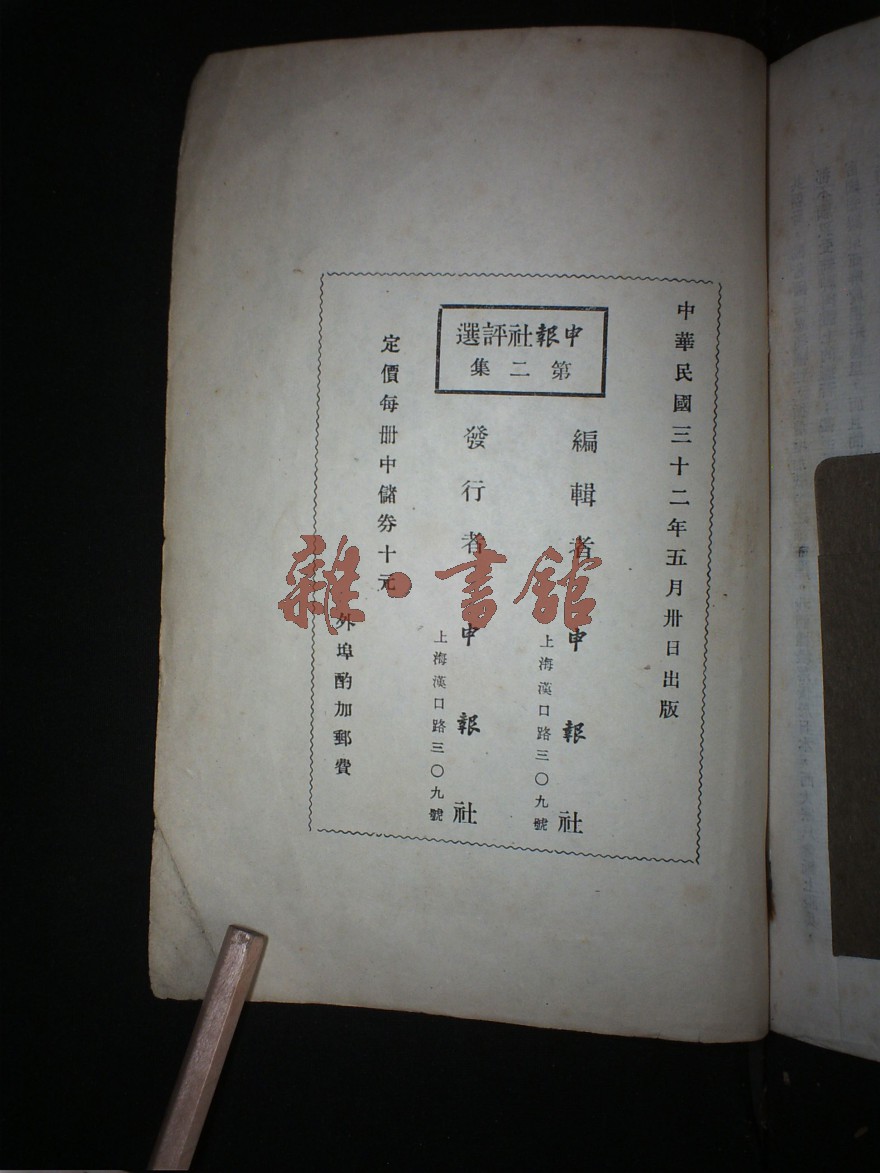 中華民國三十二年五月卅日出版
申報社評選
第二集
編輯者 申報社
上海漢口路三〇九號
發行者 申報社
上海漢口路三〇九號
定價每册中儲券十元
外埠酌加郵費
雜·書館